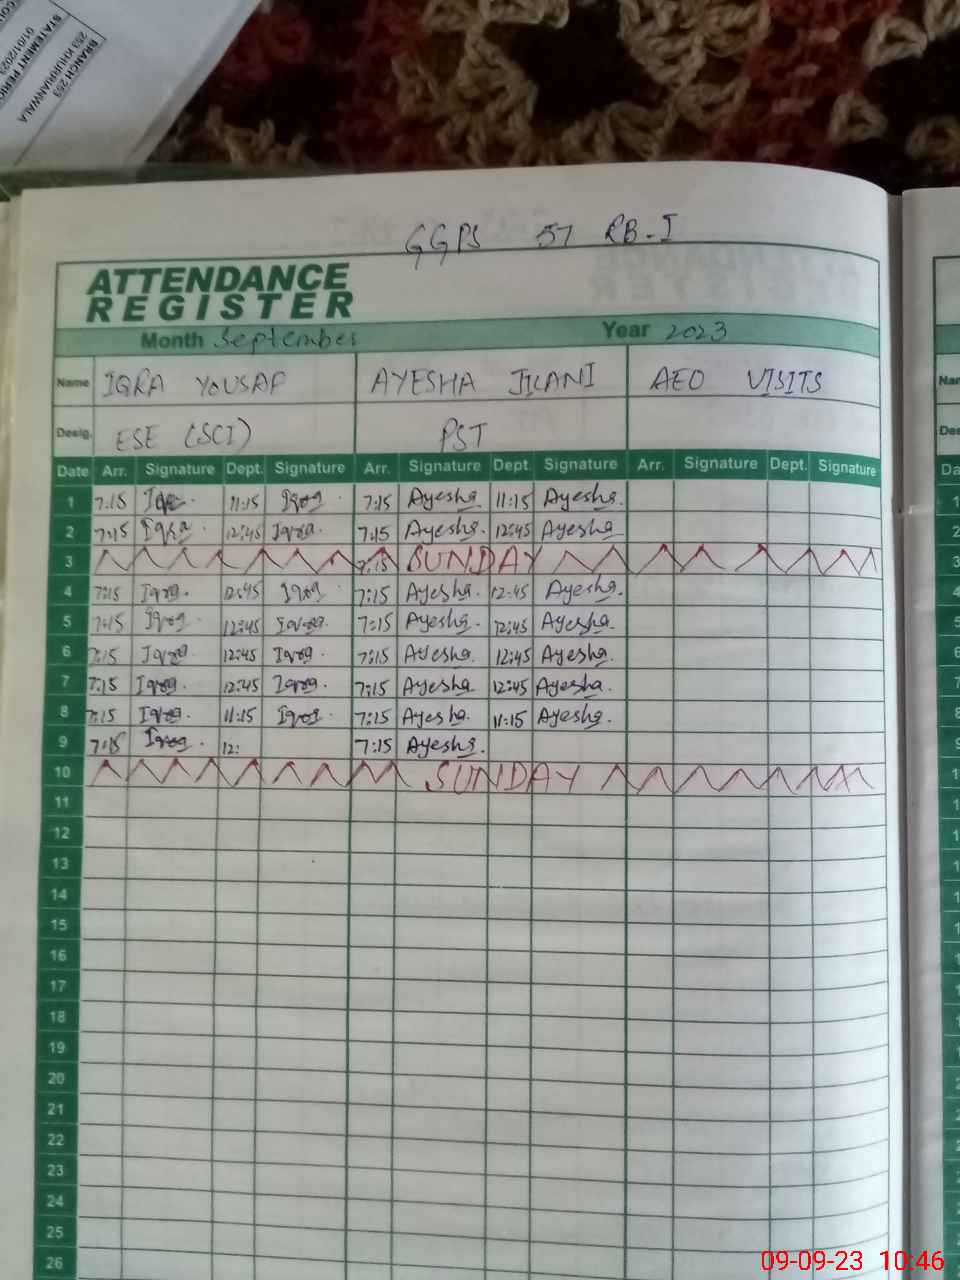 BRANCH 253
253 KHURRIANWALA
STATEMENT PERIO
01/01/2023
GGPS 57 RB-I
ATTENDANCE
REGISTER
Month September Year 2023
Name IQRA YOUSAF AYESHA JILANI AEO VISITS
Desig. ESE (SCI) PST
Date Arr. Signature Dept. Signature Arr. Signature Dept. Signature Arr. Signature Dept. Signature
1 7:15 Iqra 11:15 Iqra 7:15 Ayesha 11:15 Ayesha
2 7:15 Iqra 12:45 Iqra 7:15 Ayesha 12:45 Ayesha
3 7:15 SUNDAY
4 7:15 Iqra 12:45 Iqra 7:15 Ayesha 12:45 Ayesha
5 7:15 Iqra 12:45 Iqra 7:15 Ayesha 12:45 Ayesha
6 7:15 Iqra 12:45 Iqra 7:15 Ayesha 12:45 Ayesha
7 7:15 Iqra 12:45 Iqra 7:15 Ayesha 12:45 Ayesha
8 7:15 Iqra 11:15 Iqra 7:15 Ayesha 11:15 Ayesha
9 7:15 Iqra 12: 7:15 Ayesha
10 SUNDAY
11
12
13
14
15
16
17
18
19
20
21
22
23
24
25
26
09-09-23 10:46